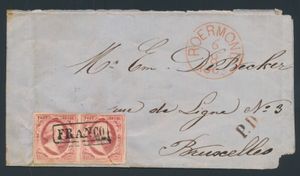 ROERMOND
6
Mr. Em. De Becker
rue de Ligne No. 3
P.D
FRANCO
Bruxelles